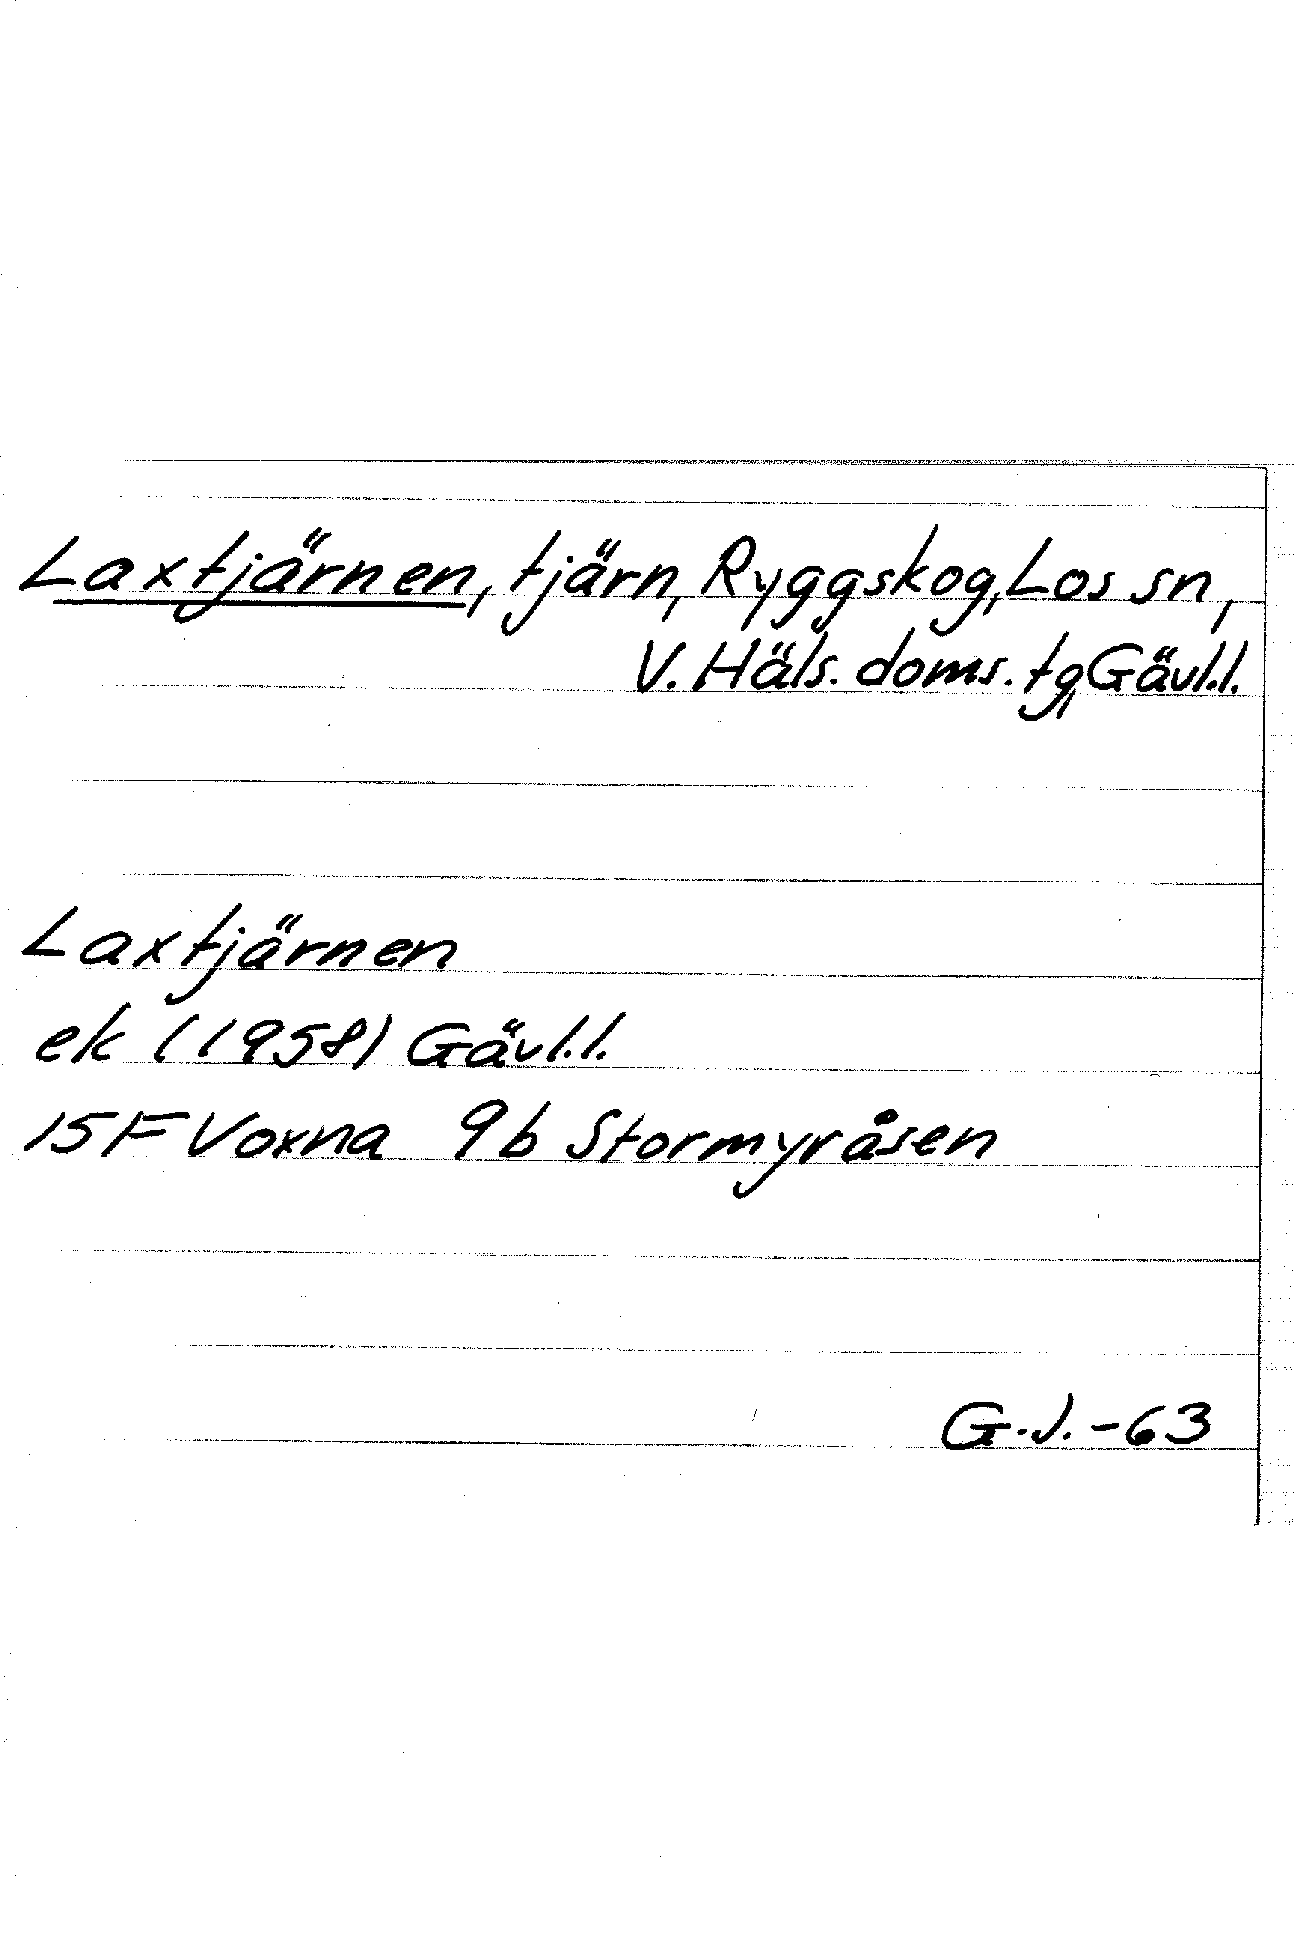 Laxtjärnen, tjärn, Ryggskog, Los sn,
V. Häls. doms. tg, Gävl.l.
Laxtjärnen
ek (1958) Gävl.l.
15F Voxna 9b Stormyråsen
G.J. -63